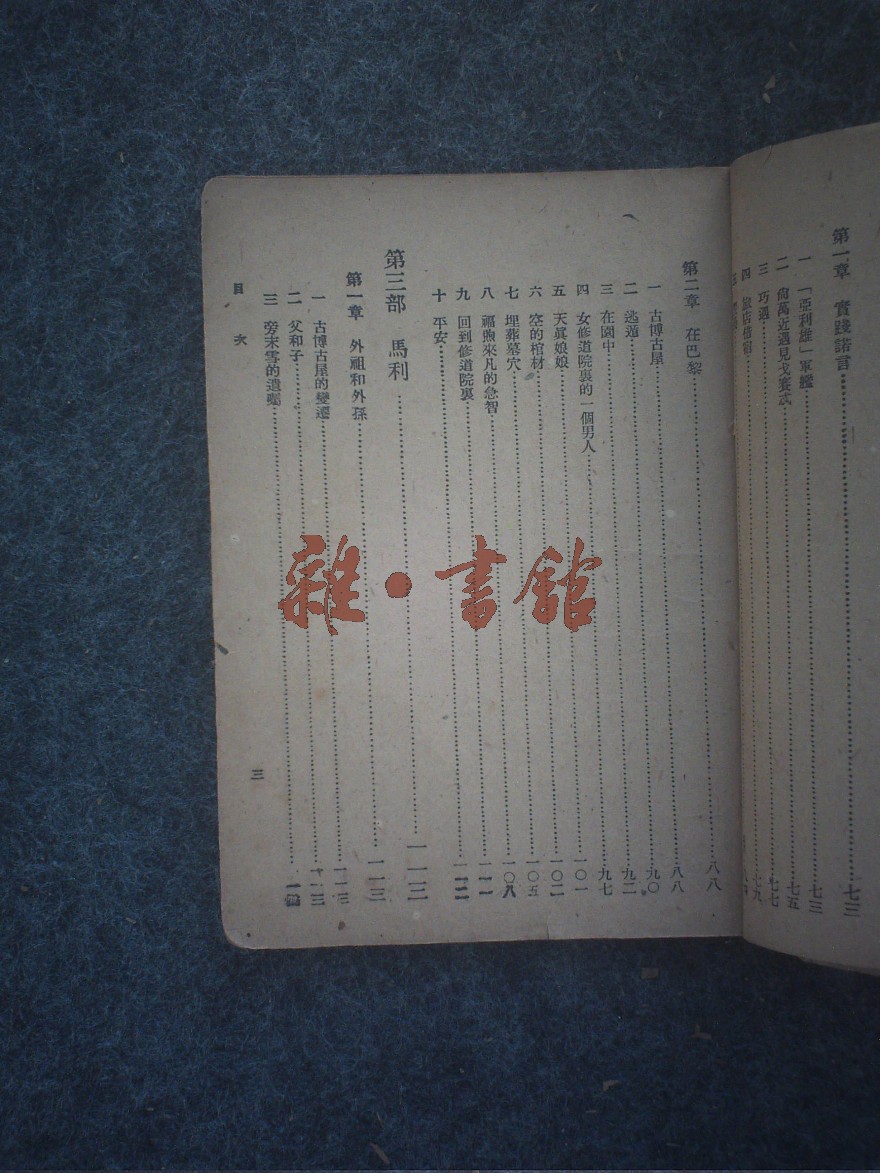 第一章 實踐諾言……七三
一 「亞利雄」軍艦……七三
二 尙萬近遇見戈賽忒……七五
三 巧遇……七七
四 旅店借宿……七九
第二章 在巴黎……八八
一 古博古屋……八八
二 逃遁……九〇
三 在園中……九二
四 女修道院裏的一個男人……九七
五 天眞娘娘……一〇一
六 空的棺材……一〇二
七 埋葬墓穴……一〇五
八 福煦來凡的急智……一〇八
九 回到修道院裏……一一一
十 平安……一一二
第三部 馬利……一一三
第一章 外祖和外孫……一一三
一 古博古屋的變遷……一一三
二 父和子……一一三
三 旁末雪的遺囑……
目次
三
雜·書館